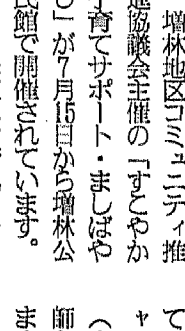 増林地区コミュニティ推
進協議会主催の「すこやか
子育てサポート・ましばや
し」が7月15日から増林公
民館で開催されています。
て
ャ
（
師
ま